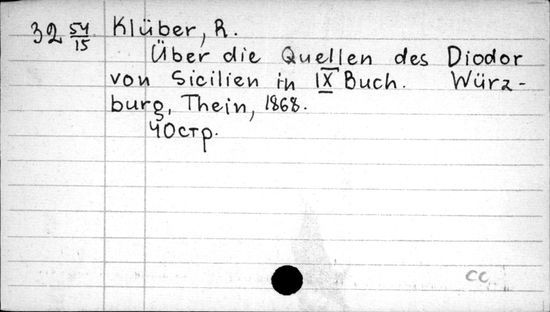 32 54/15 Klüber, R.
Über die Quellen des Diodor
von Sicilien in IX Buch. Würz-
burg, Thein, 1868.
40стр.
cc